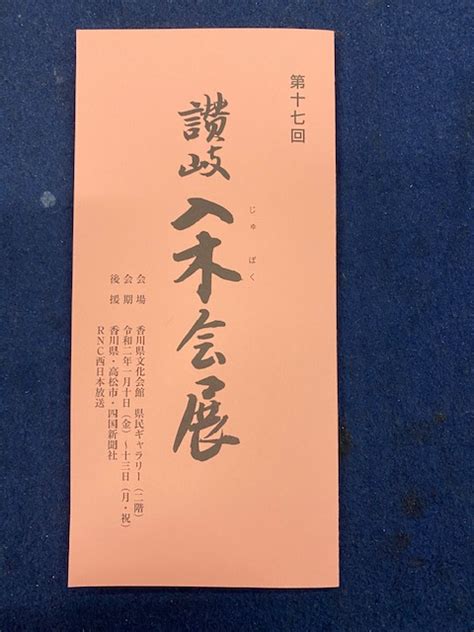 第十七回
讃岐入木会展
じゅ ぼく
会場 香川県文化会館 県民ギャラリー（二階）
会期 令和二年一月十日（金）～十三日（月・祝）
後援 香川県・高松市・四国新聞社
RNC西日本放送